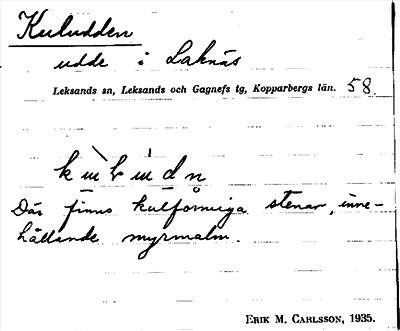 Kuludden
udde i Laknäs
Leksands sn, Leksands och Gagnefs tg, Kopparbergs län. 58
Där finns kulformiga stenar, inne-
hållande myrmalm.
ERIK M. CARLSSON, 1935.